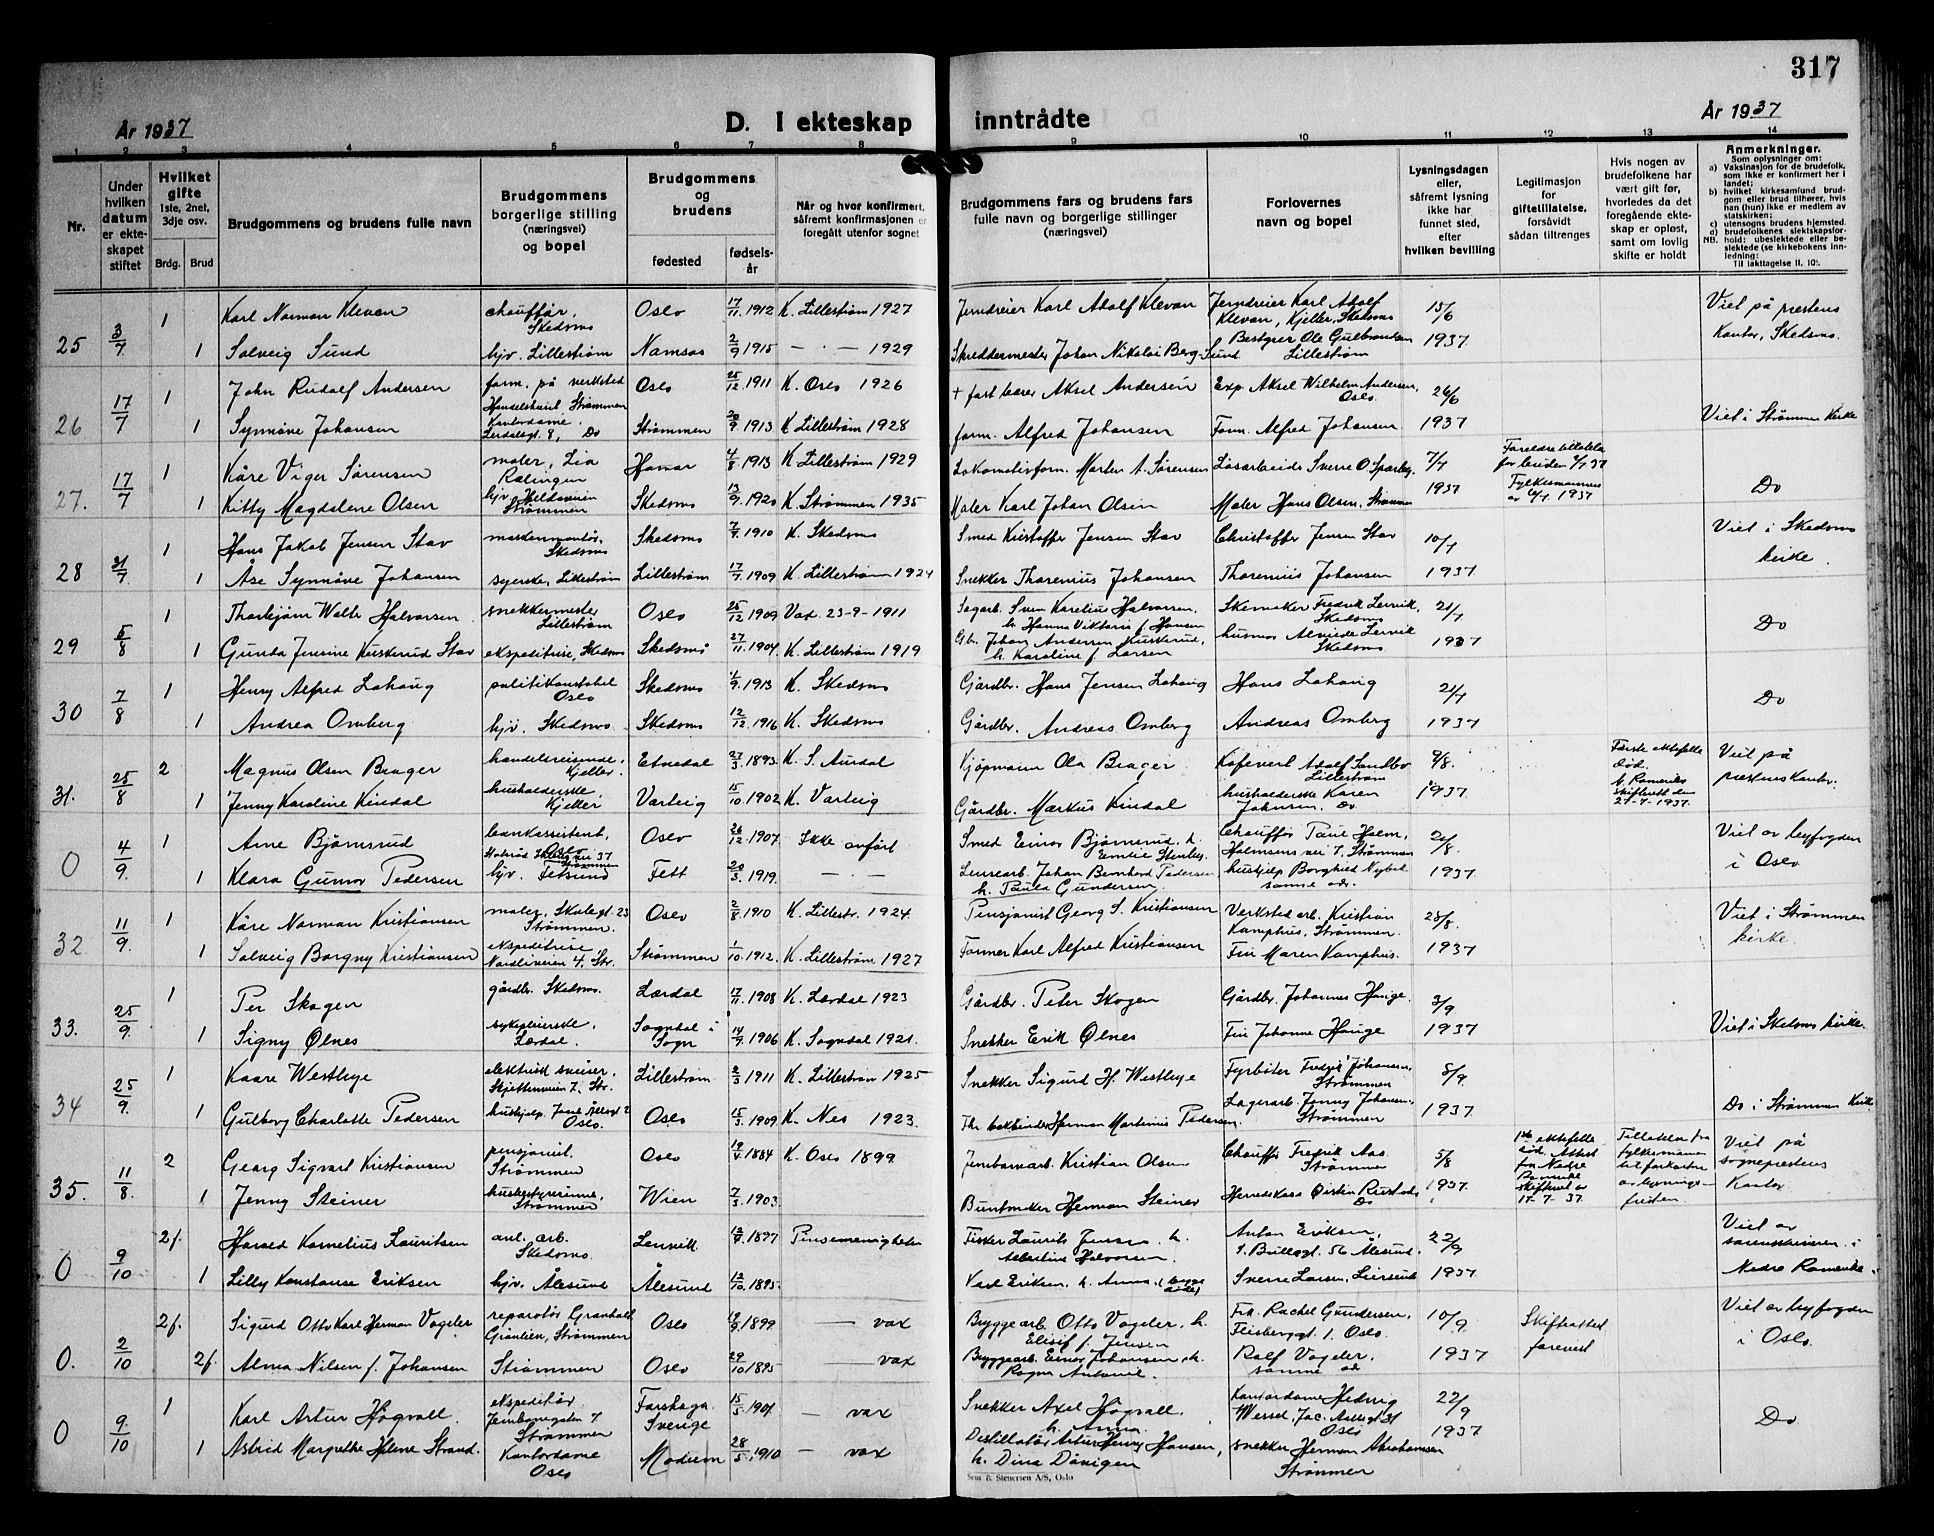 317
År 1937
D. I ekteskap inntrådte
År 1937
1 2 3 4 5 6 7 8 9 10 11 12 13 14
Nr.
Under hvilken datum er ekteskapet stiftet
Hvilket gifte 1ste, 2net, 3dje osv.
Brdg. Brud
Brudgommens og brudens fulle navn
Brudgommens borgerlige stilling (næringsvei) og bopel
Brudgommens og brudens
fødested
fødselsår
Når og hvor konfirmert, såfremt konfirmasjonen er foregått utenfor sognet
Brudgommens fars og brudens fars fulle navn og borgerlige stillinger (næringsvei)
Forlovernes navn og bopel
Lysningsdagen eller, såfremt lysning ikke har funnet sted, efter hvilken bevilling
Legitimasjon for giftetillatelse, forsåvidt sådan tiltrenges
Hvis nogen av brudefolkene har vært gift før, hvorledes da det foregående ekteskap er opløst, samt om lovlig skifte er holdt
Anmerkninger.
Som oplysninger om:
a) Vaksinasjon for de brudefolk, som ikke er konfirmert her i landet;
b) hvilket kirkesamfund brudgom eller brud tilhører, hvis han (hun) ikke er medlem av statskirken;
c) utensogns brudens hjemsted.
d) brudefolkenes slektskapsforhold: ubeslektede eller beslektede (se kirkebokens innledning:
25 3/7 1 Karl Norman Klevan chauffør, Skedsmo Oslo 17/11 1912 K. Lillestrøm 1927 Jerndreier Karl Adolf Klevan Jerndreier Karl Adolf Klevan, Kjeller, Skedsmo 15/6 Viet på prestens
1 Solveig Sund hjv. Lillestrøm Namsos 2/9 1915 — · — 1929 Skreddermester Johan Nikolai Berg-Sund Bestyrer Ole Gulbrandsen Lillestrøm 1937 Kontor, Skedsmo.
26 17/7 1 John Rudolf Andersen form. på verksted Oslo 25/12 1911 K. Oslo 1926 Aksel Andersen Exp. Aksel Wilhelm Andersen, Oslo. 26/6
1 Synnøve Johansen Kontordame. Strømmen 20/9 1913 K Lillestrøm 1928 form. Alfred Johansen Form. Alfred Johansen 1937 Viet i Strømmen Kirke
27. 17/7 1 Kåre Viger Sørensen maler, Lia Rælingen Hamar 4/8 1913 K Lillestrøm 1929 Lokomotivform. Morten A. Sørensen 7/7
1 Kitty Magdalene Olsen hjv. Strømmen Skedsmo 13/9 1920 K. Strømmen 1935 Maler Karl Johan Olsen Maler Hans Olsen, Strømmen 1937 Do
28 31/7 1 Hans Jakob Jensen Stav Skedsmo Skedsmo 7/7 1910 K. Skedsmo Smed Kristoffer Jensen Stav Christoffer Jensen Stav 10/7 Viet i Skedsmo
1 Åse Synnøve Johansen syerske, Lillestrøm Lillestrøm 17/7 1909 K. Lillestrøm 1924 Snekker Thorenius Johansen Thorenius Johansen 1937 kirke.
29 5/8 1 Thorbjørn Walter Halvorsen snekkermester Lillestrøm Oslo 25/12 1909 Vad. 23-9-1911 Sagarb. Sven Karelius Halvorsen, h. Hanna Viktoria f. Hansen Skomaker Fredrik Lervik, Skedsmo 21/7
1 Gunda Jensine Huskerud Stav ekspeditrise, Skedsmo Skedsmo 27/11 1904 K. Lillestrøm 1919 Gbr. Johan Andersen Huskerud, h. Karoline f. Larsen husmor Alvilde Lervik Skedsmo 1937 Do
30 7/8 1 Henry Alfred Lohaug politikonstabel Oslo Skedsmo 1/9 1913 K. Skedsmo Gårdbr. Hans Jensen Lohaug Hans Lohaug 21/7
1 Andrea Omberg hjv. Skedsmo Skedsmo 12/12 1916 K. Skedsmo Gårdbr. Andreas Omberg Andreas Omberg 1937 Do
31. 25/8 2 Magnus Olsen Brager handelsreisende, Kjeller. Etnedal 27/3 1893 K. S. Aurdal Kjøpmann Ola Brager Adolf Sundby Lillestrøm 9/8. Første ektefelle død. N. Romerike skifterett den 21-4-1937. Viet på
1 Jenny Karoline Kindal husholderske, Kjeller Varteig 15/10 1902 K. Varteig Gårdbr. Markus Kindal husholderske Karen Johnsen, Do 1937. prestens kontor.
0 4/9. 1 Arne Bjørnsrud bankassistent, Oslo Oslo 26/12 1907 Ikke anført Smed Einar Bjørnsrud, h. Emilie Chauffør Paul Holm, Holmsens vei 7, Strømmen 21/8. Viet av byfogden
1 Klara Gunvor Pedersen hjv. Fetsund Fett 20/3 1919. — — Johan Bernhard Pedersen h. Paula Gundersen. hushjelp Borghild Nybet samme adr. 1937. i Oslo
32. 11/9. 1 Kåre Norman Kristiansen maler, Skolegt. 23 Strømmen. Oslo 2/8 1910 K. Lillestr. 1924. Pensjonist Georg S. Kristiansen Verksted arb. Kristian Kamphus, Strømmen. 28/8. Viet i Strømmen
1 Solveig Borgny Kristiansen ekspeditrise Nordliveien 4. Str. Strømmen 1/10 1912. K. Lillestrøm 1927 Former Karl Alfred Kristiansen Fru Maren Kamphus. 1937 kirke.
33. 25/9. 1 Per Skogen gårdbr. Skedsmo. Lærdal 17/11 1908 K. Lærdal 1923 Gårdbr. Peter Skogen Gårdbr. Johannes Hauge. 3/9
1 Signy Ølnes sykepleierske, Lærdal. Sogndal i Sogn 14/9 1906 K. Sogndal 1921. Snekker Erik Ølnes Fru Johanne Hauge 1937 Viet i Skedsmo kirke.
34 25/9. 1 Kaare Westbye elektrisk sveiser, Skjettenveien 7. Str. Lillestrøm 2/3 1911 K. Lillestrøm 1925 Snekker Sigurd H. Westbye Fyrbøter Fredrik Johansen, Strømmen 8/9.
1 Gulborg Charlotte Pedersen hushjelp, Oslo. Oslo 15/3 1909 K. Nes 1923. bokbinder Herman Martinius Pedersen. Lagerarb. Jenny Johansen, Strømmen 1937. Do i Strømmen Kirke.
35. 11/8. 2 Georg Sigvart Kristiansen pensjonist. Strømmen Oslo 19/4 1884 K. Oslo 1899. Jernbanearb. Kristian Olsen Chauffør Fredrik Aas. Strømmen 5/8 1ste ektefelle død. Attest fra Nedre Romerike skifterett av 17-7-37. Tillatelse fra fylkesmannen til forkortet lysningsfristen Viet på sogneprestens
1 Jenny Steiner husbestyrerinne, Strømmen Wien 7/2 1903. Buntmaker Herman Steiner Herredskass. Øistein Rustad, Do 1937. Kontor
0 9/10 2f. Harald Kornelius Lauritsen anl. arb. Skedsmo. Lenvik 12/9 1897 Pinsemenigheten Fisker Laurits Jensen h. Albertine Halvorsen Anton Eriksen, Ålesund. 22/9 Viet av sorenskriveren i
1 Lilly Konstanse Eriksen hjv. Ålesund Ålesund 12/10 1895. Karl Eriksen, h. Anna, (begge døde) Sverre Larsen, 1937. Nedre Romerike.
0. 2/10 2f. Sigurd Otto Karl Herman Vogeler reparatør Granholt Grønlien, Strømmen Oslo 19/9 1899 — vax Bryggearb. Otto Vogeler, h. Elisif f. Jensen Frk. Rachel Gundersen, Oslo. 10/9. Skifteattest Viet av byfogden
2f. Alma Nilsen f. Johansen Strømmen Oslo 29/10 1895 vax Bryggearb. Einar Johansen, h. Ragna Antonie. Ralf Vogeler, samme ad. 1937 forevist i Oslo.
0 9/10 1 Karl Artur Högvall. ekspeditør Jernbanegaten 7 Strømmen Forshaga Sverige 15/5 1907 — vax Snekker Axel Högvall. h. Anna. Kontordame Hedvig Wessel, Jac. Aallsgt 31 Oslo 22/9 Do
1 Astrid Margrethe Helene Strand. Kontordame Oslo Modum 28/5 1910 — vax Destillatør Artur Henry Hansen, h. Dina Dövigen snekker Herman Abrahamsen Strømmen 1937.
Sem & Stenersen A/S, Oslo